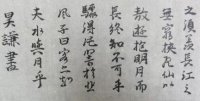 之須臾羨長江之
無窮挾飛仙以
遨遊抱明月而
長終知不可乎
驟得托遺響於悲
風子曰客亦知
夫水與月乎
吳謙書